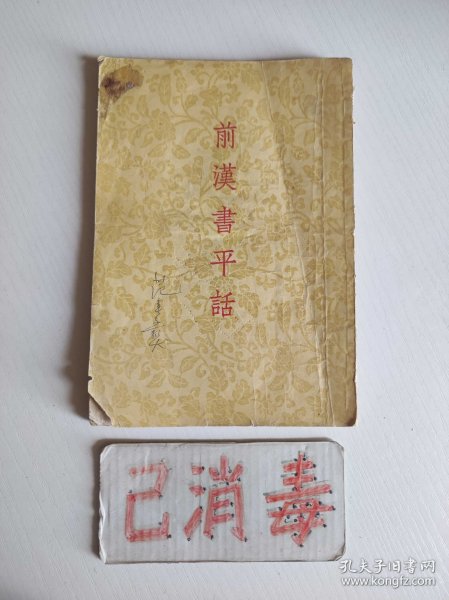 前漢書平話
已消毒
孔夫子旧书网
www.kongfz.com